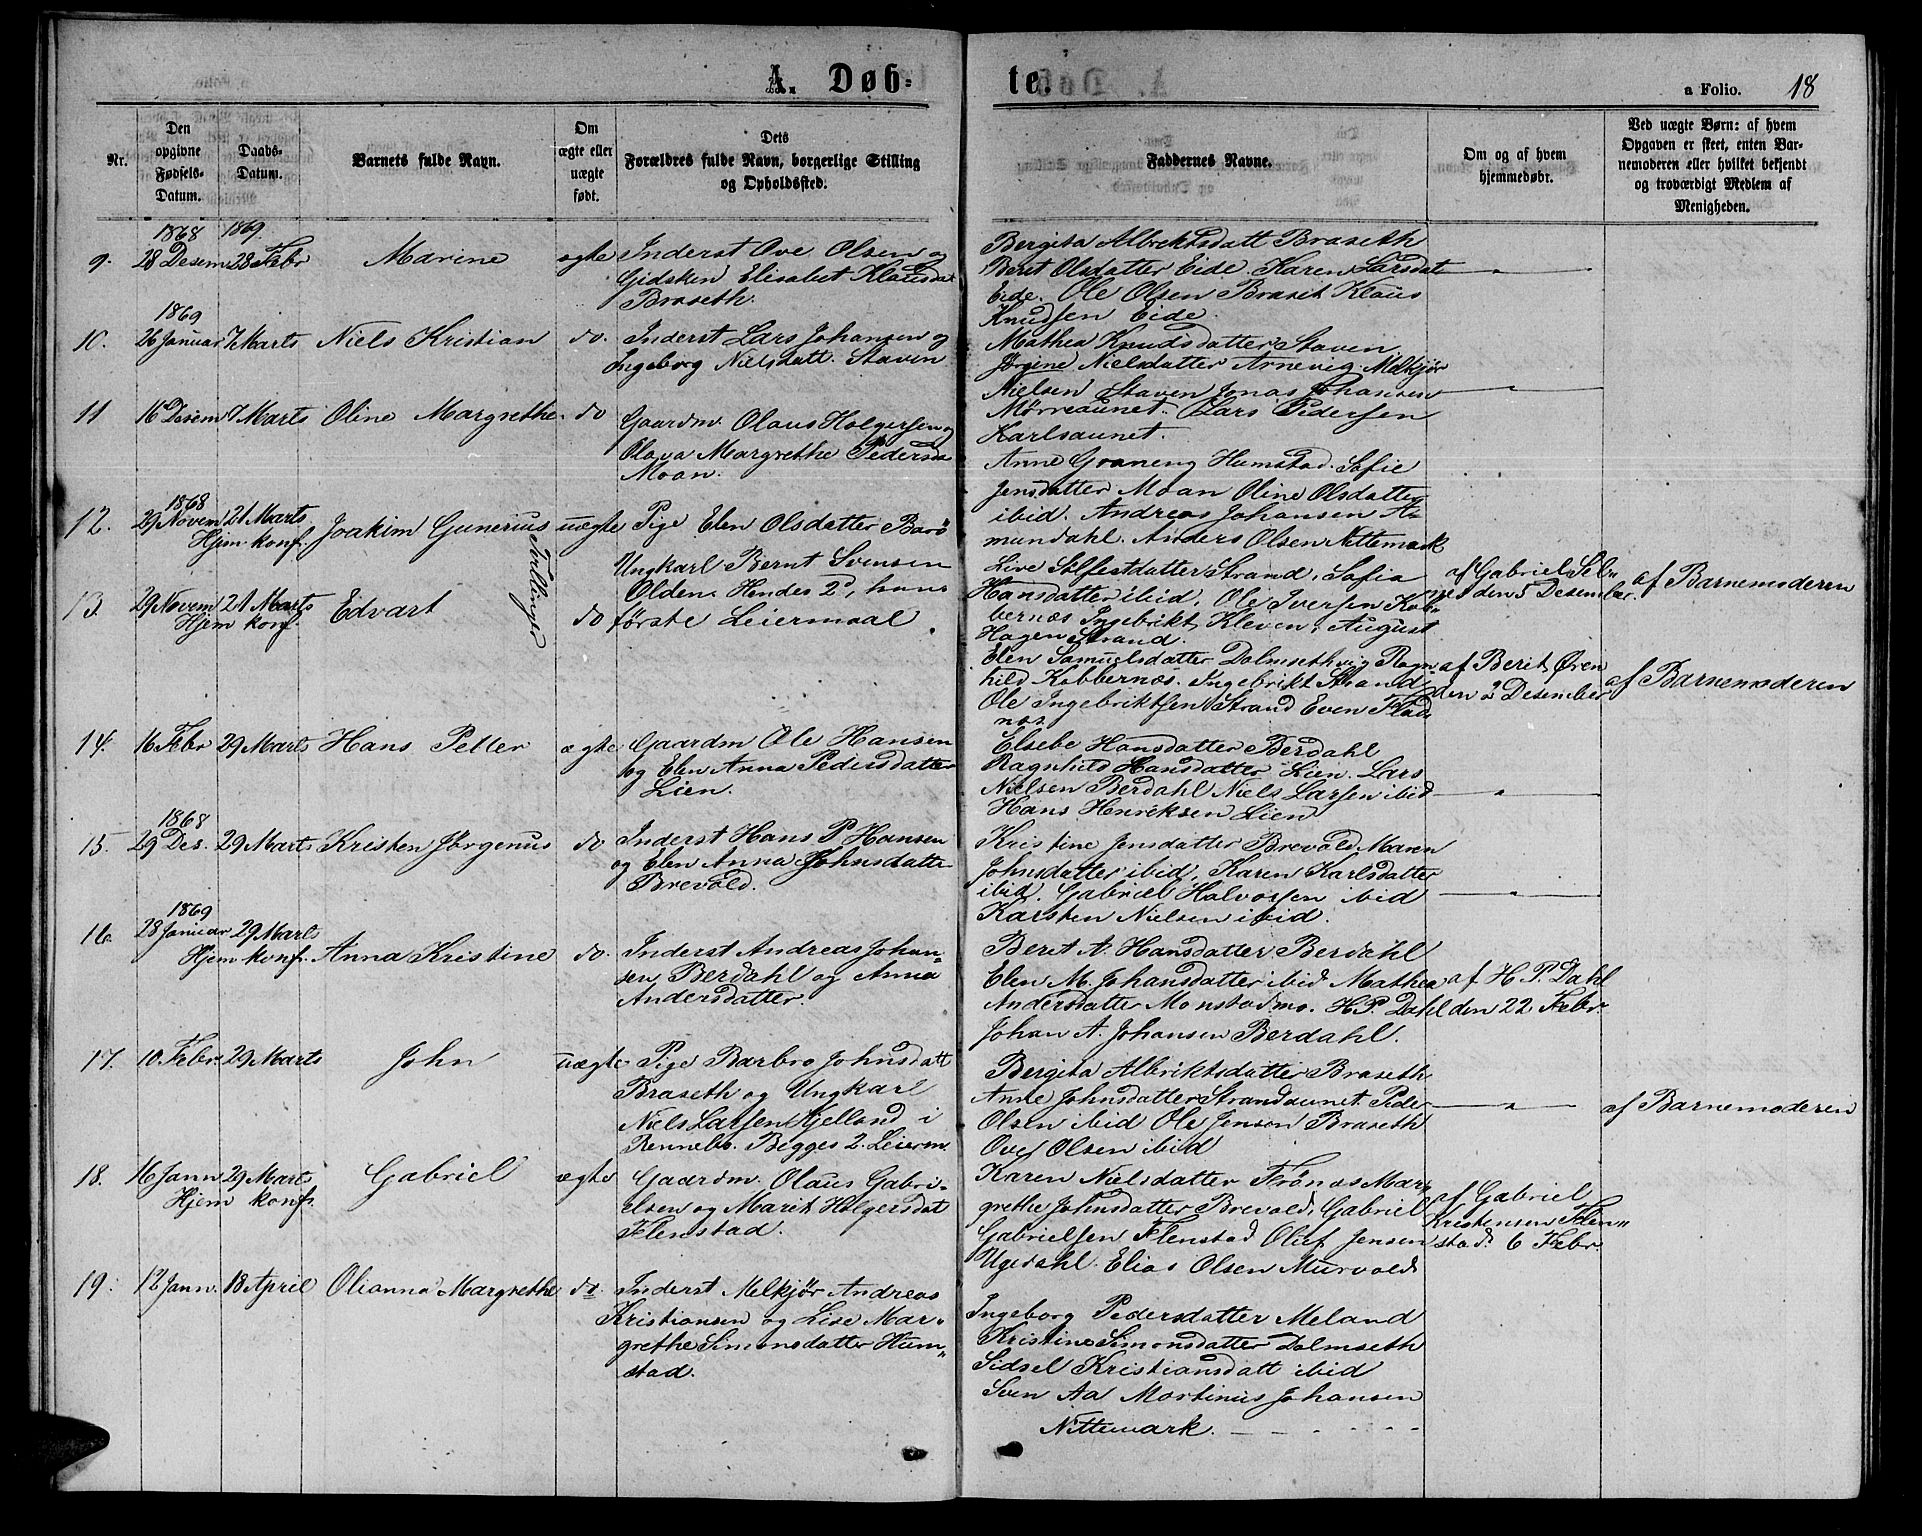 A. Døb-
te.
a Folio. 18
Nr.
Den opgivne Fødsels-Datum.
Daabs-Datum.
Barnets fulde Navn.
Om ægte eller uægte født.
Dets Forældres fulde Navn, borgerlige Stilling og Opholdssted.
Faddernes Navne.
Om og af hvem hjemmedøbt.
Ved uægte Børn: af hvem Opgaven er skeet, enten Barnemoderen eller hvilket bekjendt og troværdigt Medlem af Menigheden.
1868 1869
9. 28 Desem 28 Febr Marine ægte Inderst Ove Olsen og
Gidsken Elisabet Klausda
Braseth.
Bergita Albrektsdatt Braseth
Beret Olsdatter Eide. Karen Larsdat
Eide. Ole Olsen Braset Klaus
Knudsen Eide.
1869
10. 26 Januar 7 Marts Niels Kristian do. Inderst Lars Johansen og
Ingeborg Nielsdatt. Staven
Mathea Knudsdatter Staven
Jørgine Nielsdatter Arnevig. Melkjør
Nielsen Staven Jonas Johansen
Mørreaunet. Lars Pedersen
Karlsaunet.
11 16 Desem 7 Marts Oline Margrethe do Gaardm. Olaus Holgersen og
Olava Margrethe Pedersda
Moan.
Anne Graneng Humstad. Sofie
Jensdatter Moan Oline Olsdatter
ibid. Andreas Johansen A-
mundahl. Anders Olsen Nettemark
1868
12. 29 Novem 21 Marts Joakim Gunerius uægte Pige Elen Olsdatter Barö
Hjem konf.
Tvillinger
Ungkarl Bernt Svensen
Olden. Hendes 2d, hans
første Leiermaal.
Live Selfestdatter Strand, Sofia
Hansdatter ibid, Ole Iversen Kob-
bernæs Ingebrikt Kleven, August
Hagen Strand.
af Gabriel Sel-
nes den 5 Desember. af Barnemoderen
13. 29 Novem 21 Marts Edvart do
Hjem konf.
Elen Samuelsdatter Dolmsethvig Ragn
hild Kobbernæs. Ingebrikt Strand
Ole Ingebriktsen Strand Even Flad
næs
af Berit Øren
den 2 Desember af Barnemoderen
14. 16 Febr 29 Marts Hans Petter ægte Gaardm Ole Hansen
og Elen Anna Pedersdatter
Lien.
Elsebe Hansdatter Berdahl
Ragnhild Hansdatter Lien. Lars
Nielsen Berdahl Niels Larsen ibid
Hans Henriksen Lien
1868
15. 29 Des. 29 Marts Kristen Jørgenus do Inderst Hans P Hansen
og Elen Anna Johnsdatte
Brevold.
Kristine Jensdatter Brevold. Maren
Johnsdatter ibid, Karen Karlsdatter
ibid. Gabriel Halvorsen ibid
Karsten Nielsen ibid.
1869
16. 28 Januar 29 Marts
Hjem konf. Anna Kristine do. Inderst Andreas Johan-
sen Berdahl og Anna
Andersdatter.
Beret A. Hansdatter Berdahl
Elen M. Johansdatter ibid Mathea
Andersdatter Monstadmo. H.P. Dahl
Johan A. Johansen Berdahl.
af H. P. Dahl
den 22 Febr.
17. 10. Febr. 29 Marts John uægte Pige Barbro Johnsdatt
Braseth og Ungkarl
Niels Larsen Kjelland i
Rennebo. Begges 2. Leierm.
Bergita Albriktsdatter Braseth
Anne Johnsdatter Strandaunet. Peder
Olsen ibid Ole Jenson Braseth
Ove Olsen ibid
af Barnemoderen
18. 16 Jann 29 Marts Gabriel ægte Gaardm. Olaus Gabri-
Hjem konf.
elsen og Marit Holgersdat
Flenstad.
Karen Nielsdatter Frönæs Mar
grethe Johnsdatter Brevold, Gabriel
Gabrielsen Flenstad Oluf Jensen
Ugedahl. Elias Olsen Murvold
af Gabriel
Kristensen Flen-
stad. 6 Febr.
19. 12 Jann. 18 April Olianna Margrethe do. Inderst Melkjør Andreas
Kristiansen og Lise Mar-
grethe Simonsdatter Hum-
stad.
Ingeborg Pedersdatter Meland
Kristine Simonsdatter Dolmseth
Sidsel Kristiansdatt ibid
Sven Aa Martinus Johansen
Nittemark.